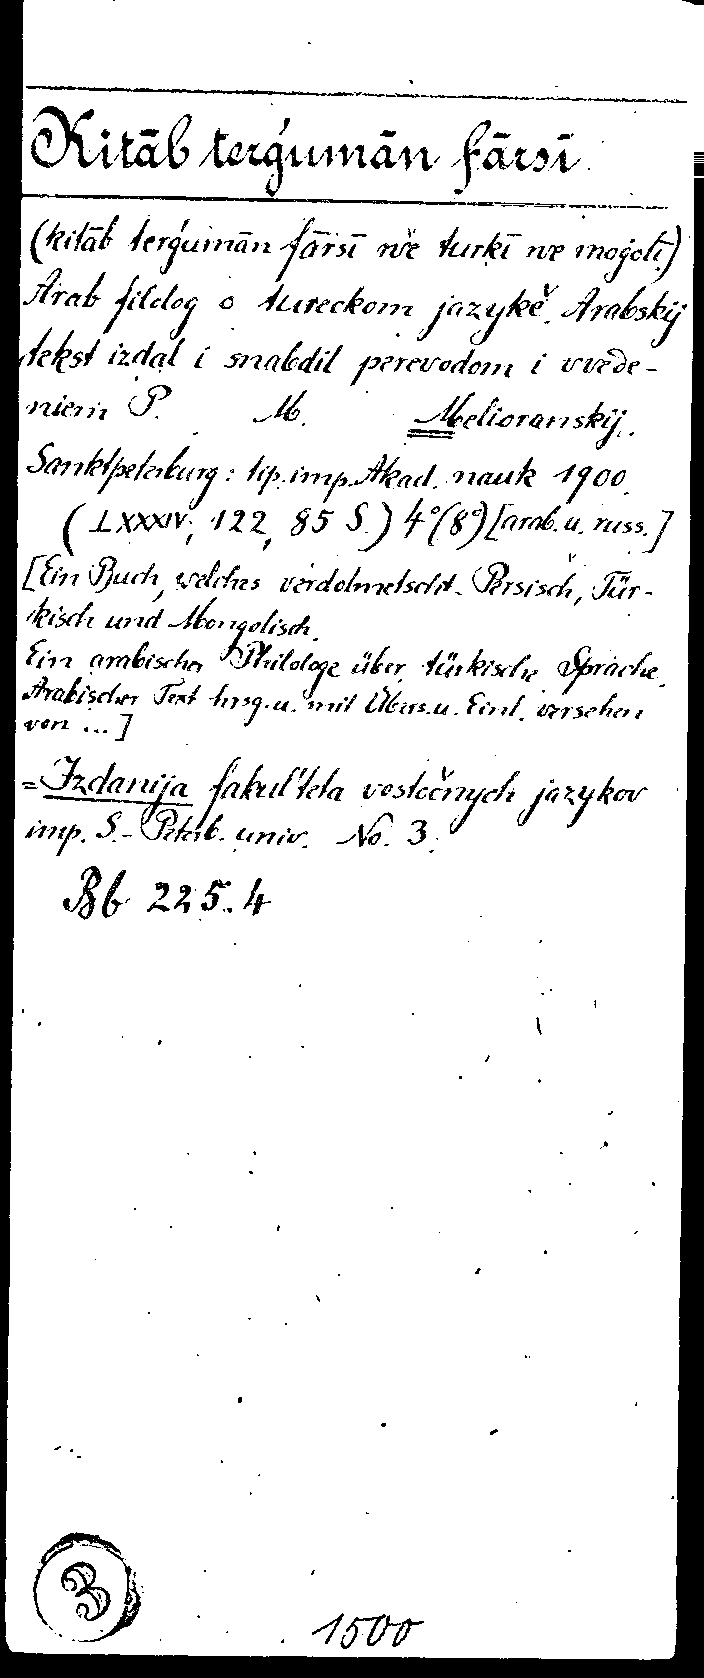 Kitāb terǵumān fārsī
(kitāb terǵumān fārsī we turkī we mogolī)
Arab filolog o tureckom jazykě. Arabskij
tekst izdal i snabdil perevodom i vvede-
niem P. M. Melioranskij.
Sanktpeterburg: tip. imp. Akad. nauk 1900.
(LXXXIV, 122, 85 S.) 4°(8°) [arab. u. russ.]
[Ein Buch, welches verdolmetscht. Persisch, Tür-
kisch und Mongolisch.
Ein arabischer Philologe über türkische Sprache.
Arabischer Text hrsg. u. mit Übers. u. Einl. versehen
von ...]
= Izdanija fakul'teta vostočnych jazykov
imp. S.-Peterb. univ. No. 3.
Bb 225.4
3
1500